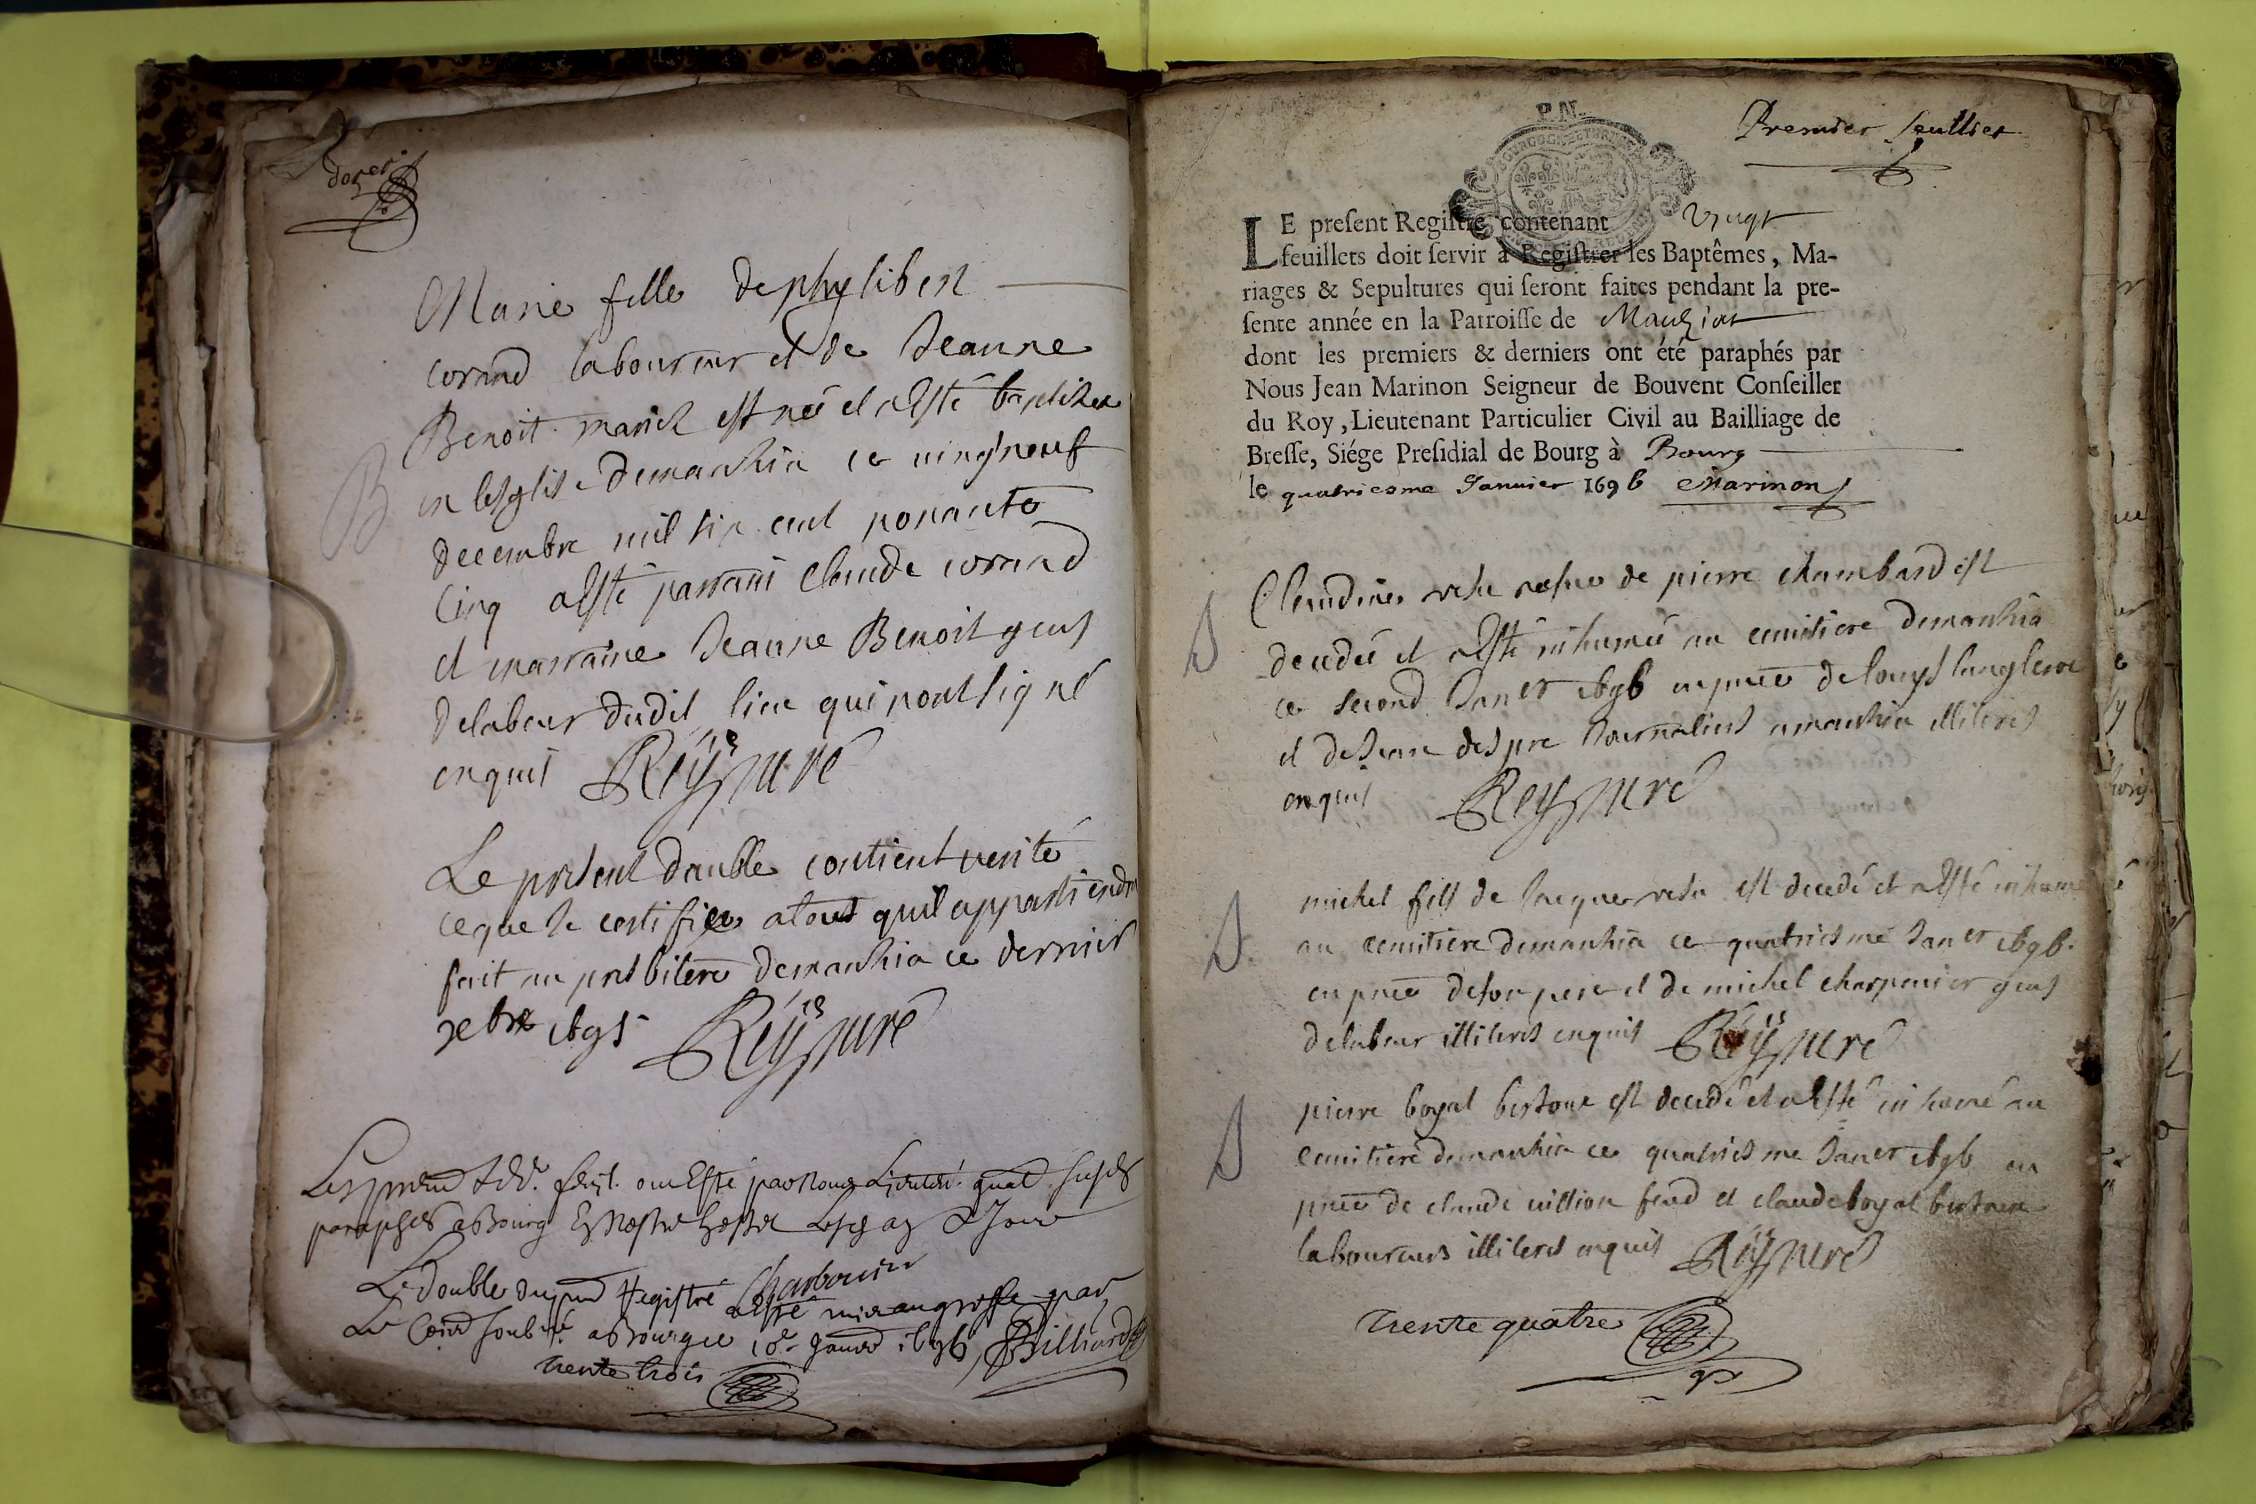 Marie fille de phylibert
corand laboureur et de Jeanne
Benoit mariés est née et a esté baptisée
en lesglise demanthia ce vingt neuf
decembre mil six cent nonante
cinq a esté parrain Claude corand
et marraine Jeanne Benoit gens
delabeur dudit lieu qui nont signé
enquis Réÿ curé
Le present double contient verité
ce que Je certifie a tous quil appartiendra
fait au presbitere demanthia ce dernier
xbre 1695 Réÿ curé
paraphés a Bourg
Charbonier
Le double Registre
a esté mis au greffe par
a Bourg ce 18e 1696 Billiard
trente trois
P.N.
Premier feullet
LE preſent Regiſtre contenant vingt
feuillets doit ſervir à Regiſtrer les Baptêmes, Ma-
riages & Sepultures qui ſeront faites pendant la pre-
ſente année en la Parroiſſe de Manziat
dont les premiers & derniers ont été paraphés par
Nous Jean Marinon Seigneur de Bouvent Conſeiller
du Roy, Lieutenant Particulier Civil au Bailliage de
Breſſe, Siége Preſidial de Bourg à Bourg
le quatriesme Janvier 1696 Marinon
Claudine vesu vefue de pierre chambard est
decedée et a esté inhumée au cemitiere demanthia
ce second Janer 1696 en pnce de louys
et de Jean despre Journaliers a manthia illiterés
enquis Rey curé
michel fils de Jacques vesu est decedé et a esté inhumé
au cemitiere demanthia ce quatriesme Janer 1696
en pnce deson pere et de michel charpenier gens
delabeur illiterés enquis Réÿ curé
pierre boyat bertone est decedé et a esté inhumé au
cemitiere demanthia ce quatriesme Janer 1696 en
pnce de claude et claude boyat bertone
laboureurs illiterés enquis Réÿ curé
trente quatre